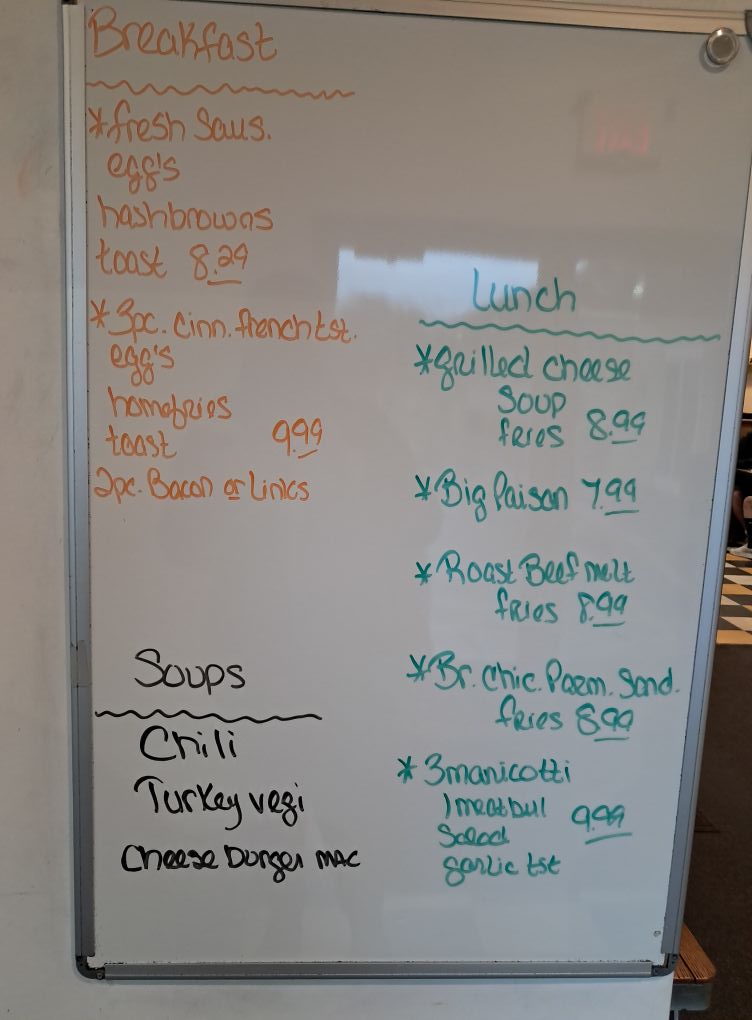 Breakfast
*fresh Saus.
egg's
hashbrowns
toast 8.29
*3pc. Cinn. french tst.
egg's
homefries
toast 9.99
2pc. Bacon or Links
Soups
Chili
Turkey vegi
Cheese burger mac
Lunch
*grilled cheese
Soup
fries 8.99
*Big Paisan 7.99
*Roast Beef melt
fries 8.99
*Br. Chic. Parm. Sand.
fries 8.99
*3manicotti
1 meatbul
Salad 9.99
garlic tst